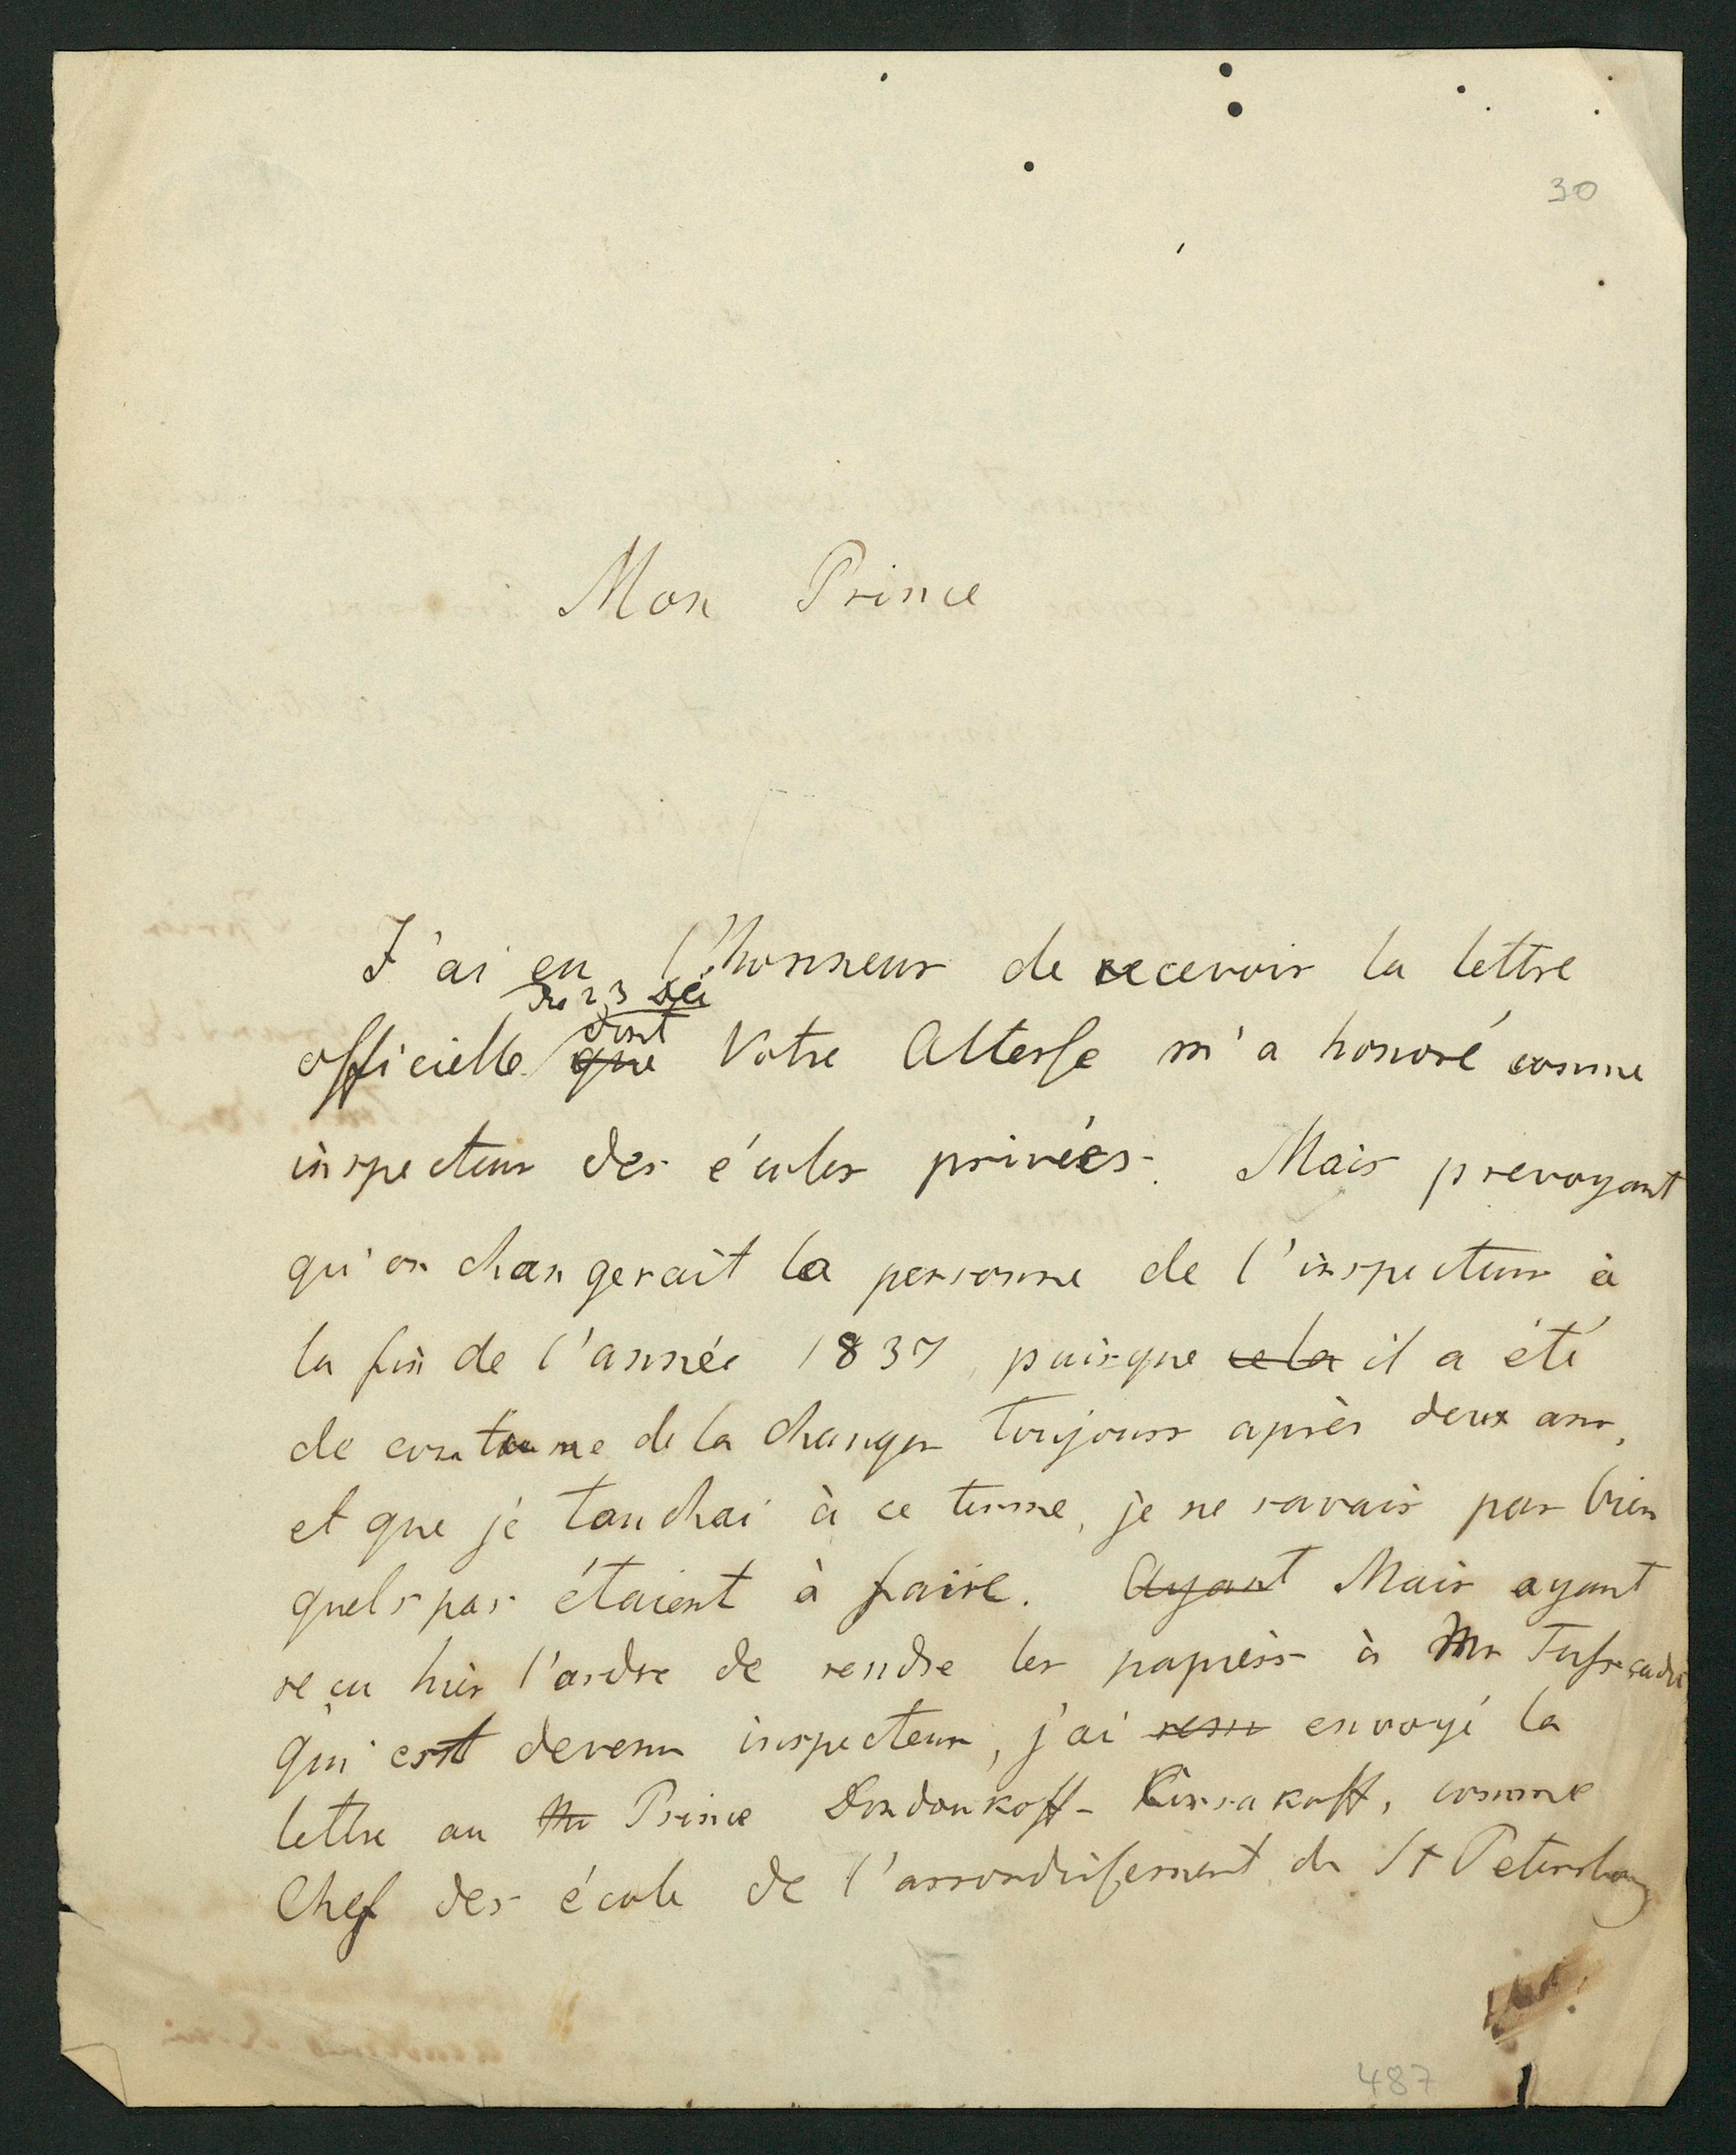 30
Mon Prince
J'ai eu l'honneur de recevoir la lettre
No 23
dont
officielle que Votre Altesse m'a honoré comme
inspecteur des écoles privées. Mais prevoyant
qu'on changerait la personne de l'inspecteur à
la fin de l'année 1837, puisque cela il a été
de coutume de la changer toujours après deux ans,
et que je touchai à ce terme, je ne savais pas bien
quels pas étaient à faire. Ayant Mais ayant
reçu hièr l'ordre de rendre les papièrs à Mr
qui est devenu inspecteur, j'ai envoyé la
lettre au Mr Prince Dondoukoff-Korsakoff, comme
Chef des école de l'arrondissement de St Petersbourg
487